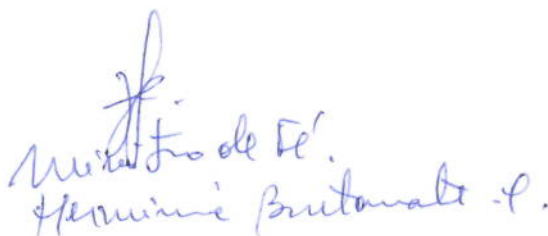 Ministro de Fé.
Herminia Bustamante P.